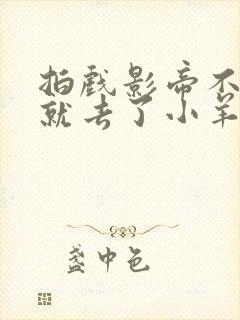 拍戏影帝不
就去了小羊
盏中色